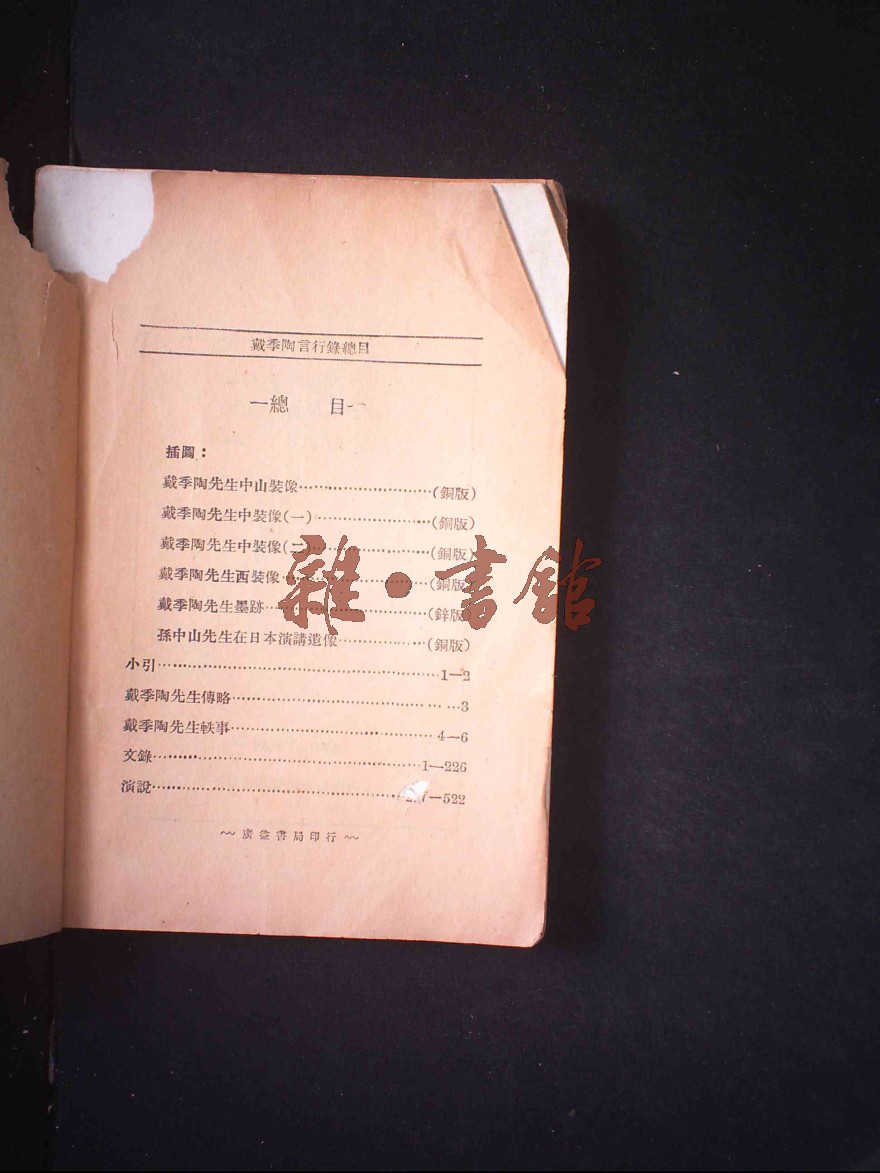 戴季陶言行錄總目
一總 目一
插圖：
戴季陶先生中山裝像……………………(銅版)
戴季陶先生中裝像(一)…………………(銅版)
戴季陶先生中裝像(二)…………………(銅版)
戴季陶先生西裝像………………………(銅版)
戴季陶先生墨跡…………………………(鋅版)
孫中山先生在日本演講遺像……………(銅版)
小引……………………………………1—2
戴季陶先生傳略………………………3
戴季陶先生軼事………………………4—6
文錄……………………………………1—226
演說……………………………………—522
~~ 廣益書局印行 ~~
雜·書館